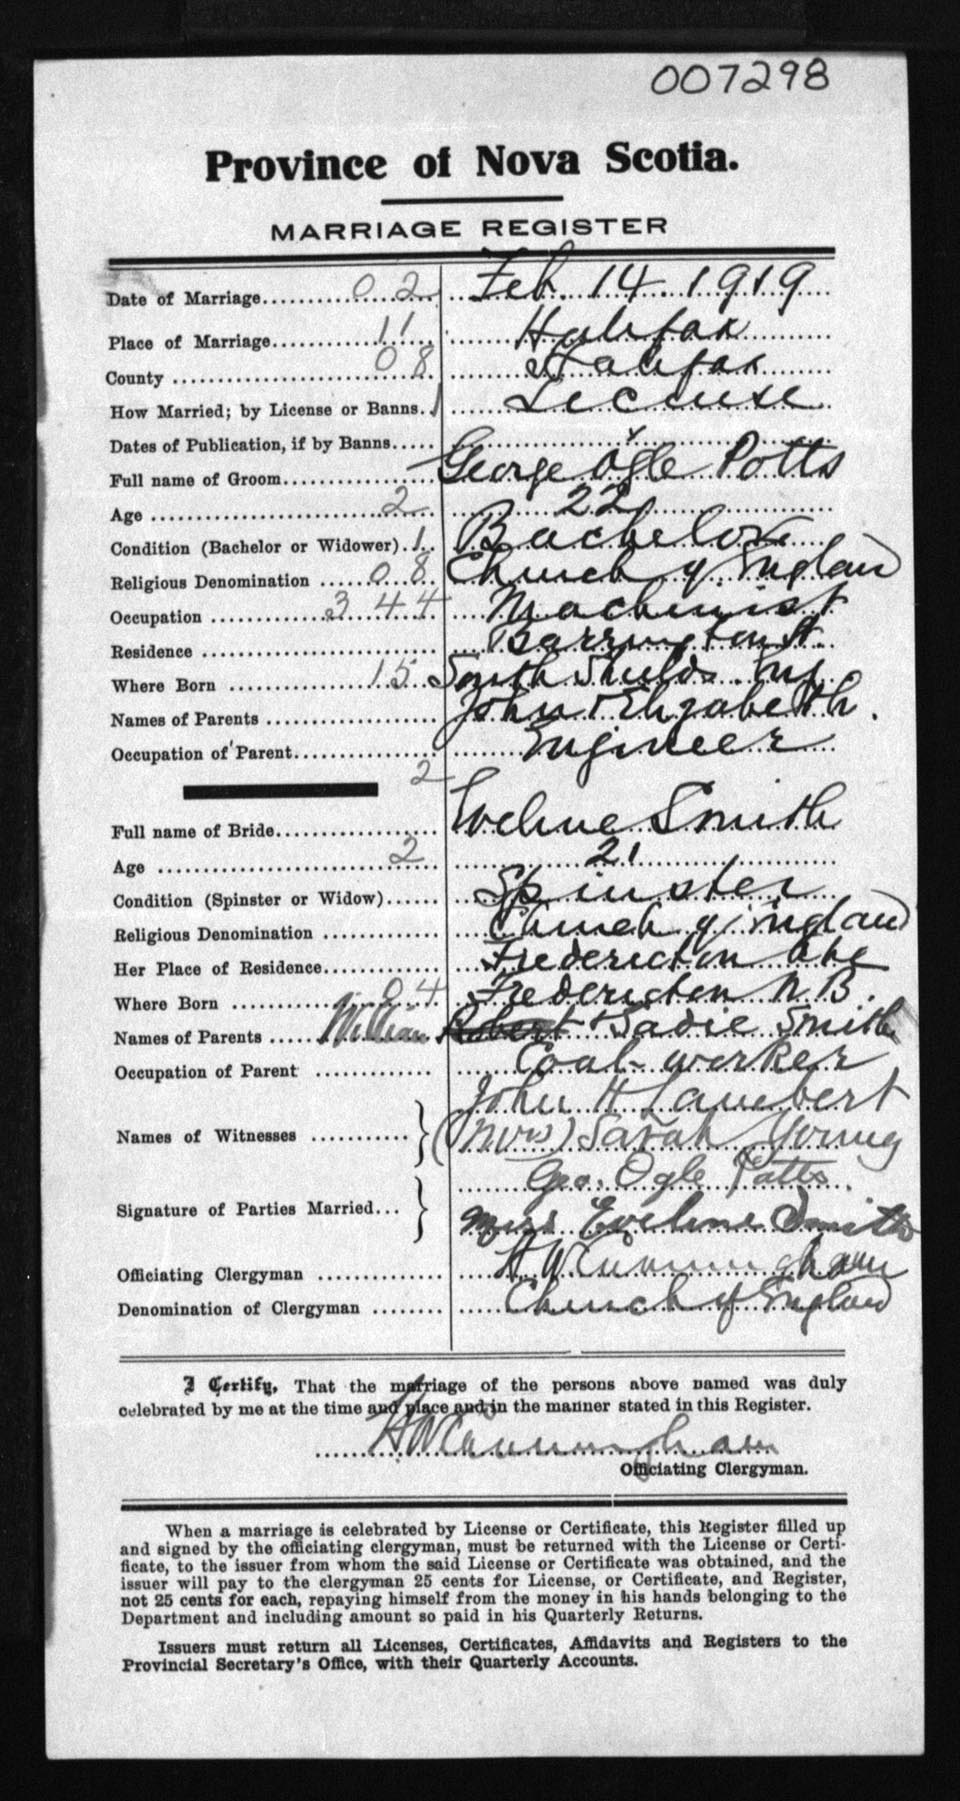 007298
Province of Nova Scotia.
MARRIAGE REGISTER
Date of Marriage 02 Feb. 14. 1919
Place of Marriage 11 Halifax
County 08 Halifax
How Married; by License or Banns. 1 License
Dates of Publication, if by Banns
Full name of Groom George Ogle Potts
Age 2 22
Condition (Bachelor or Widower) 1 Bachelor
Religious Denomination 08 Church of England
Occupation 344 Machinist
Residence Barrington St.
Where Born 15 South Shields. Eng.
Names of Parents John + Elizabeth.
Occupation of Parent Engineer
2
Full name of Bride Eveline Smith
Age 2 21
Condition (Spinster or Widow) Spinster
Religious Denomination Church of England
Her Place of Residence Fredericton
Where Born 04 Fredericton N B.
Names of Parents William Robert + Sadie Smith
Occupation of Parent Coal-worker
John H Lambert
Names of Witnesses
(Mrs) Sarah Young
Geo. Ogle Potts.
Signature of Parties Married...
Miss Eveline Smith
Officiating Clergyman H W Cunningham
Denomination of Clergyman Church of England
I Certify, That the marriage of the persons above named was duly
celebrated by me at the time and place and in the manner stated in this Register.
H W Cunningham
Officiating Clergyman.
When a marriage is celebrated by License or Certificate, this Register filled up
and signed by the officiating clergyman, must be returned with the License or Certi-
ficate, to the issuer from whom the said License or Certificate was obtained, and the
issuer will pay to the clergyman 25 cents for License, or Certificate, and Register,
not 25 cents for each, repaying himself from the money in his hands belonging to the
Department and including amount so paid in his Quarterly Returns.
Issuers must return all Licenses, Certificates, Affidavits and Registers to the
Provincial Secretary's Office, with their Quarterly Accounts.